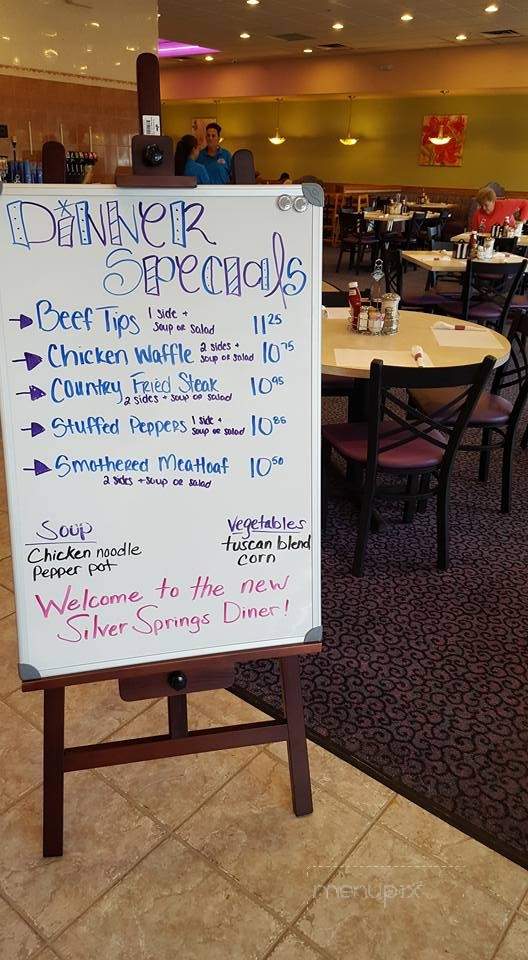 DINNER
Specials
Beef Tips 1 side + soup or salad 11 25
Chicken Waffle 2 sides + soup or salad 10 75
Country Fried Steak 10 95
2 sides + soup or salad
Stuffed Peppers 1 side + soup or salad 10 86
Smothered Meatloaf 10 50
2 sides + soup or salad
Soup
Chicken noodle
Pepper pot
Vegetables
tuscan blend
corn
Welcome to the new
Silver Springs Diner!
menupix